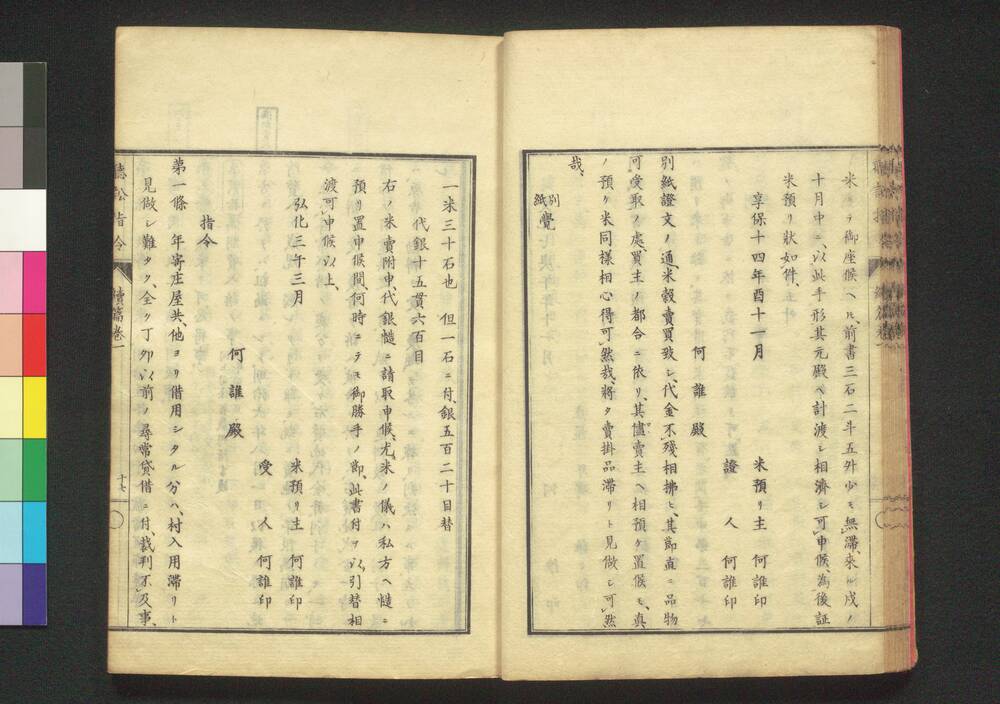 米ヲラ御座候ヘ𪜈、前書三石二斗五外少モ無滞、來ル戌ノ
十月中ニ、以此手形其元殿ヘ計渡シ相濟シ可申候、為後証
米預リ狀如件、
享保十四年酉十一月
米預リ主 何誰印
證人 何誰印
何誰殿
別紙證文ノ通、米穀賣買致シ、代金不殘相拂ヒ、其節直ニ品物
可受取ノ處、買主ノ都合ニ依リ、其儘賣主ヘ相預ケ置候モ、真
ノ預ケ米同樣相心得可然哉、將タ賣掛品滯リト見做シ可然
哉、
別紙 覺
一米三十石也 但一石ニ付、銀五百二十目替
代銀十五貫六百目
右ノ米賣附申、代銀慥ニ請取申候、尤米ノ儀ハ私方ヘ慥ニ
預リ置申候間、何時ニテモ御勝手ノ節、此書付ヲ以、引替相
渡可申候、以上、
弘化三午三月
米預リ主 何誰印
受人 何誰印
何誰殿
指令
第一條 年寄庄屋共、他ヨリ借用シタル分ハ、村入用滯リト
見做シ難タク、全ク丁卯以前ノ尋常貸借ニ付、裁判不及事、
聽訟指令 續篇卷一 十七